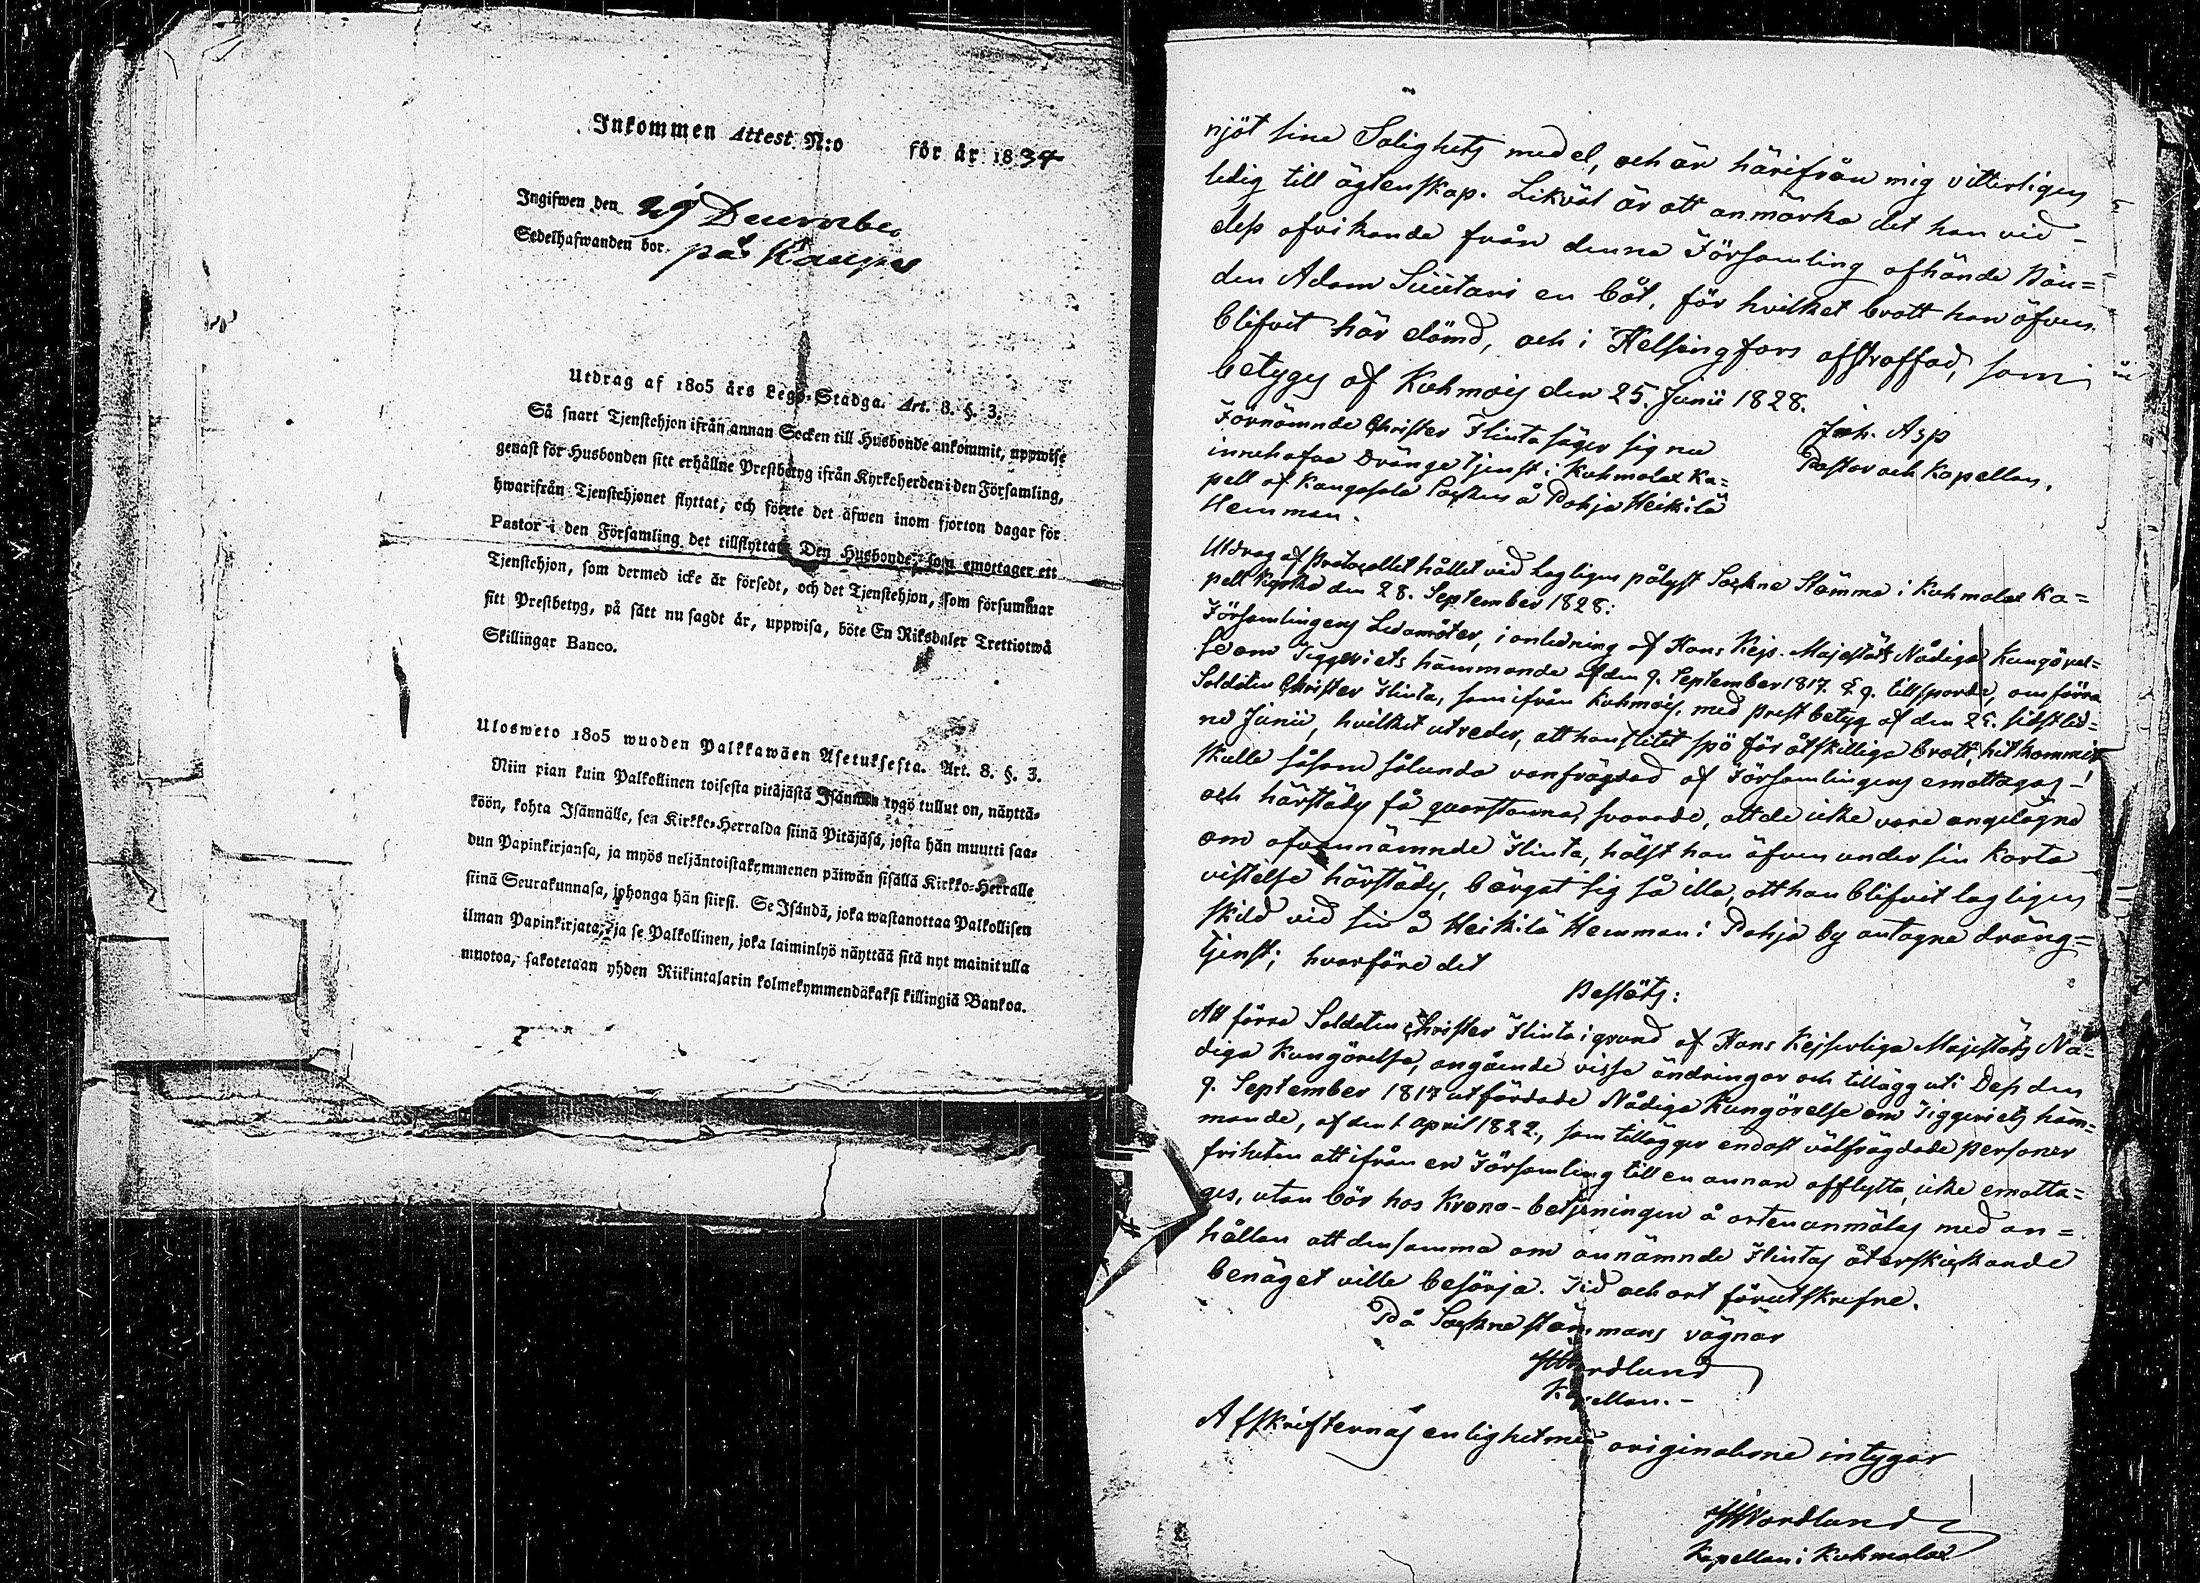 Inkommen Attest N:o för år 1834
Ingifwen den 29 December
Sedelhafwanden bor på Kauppi
Utdrag af 1805 års Lego-Stadga. Art. 8. §. 3.
Så snart Tjenstehjon ifrån annan Socken till Husbonde ankommit, uppwise
genast för Husbonden sitt erhållne Prestbetyg ifrån Kyrkoherden i den Församling,
hwarifrån Tjenstehjonet flyttat, och förete det äfwen inom fjorton dagar för
Pastor i den Församling det tillflyttat. Den Husbonde, som emottager ett
Tjenstehjon, som dermed icke är försedt, och det Tjenstehjon, som försummar
sitt Prestbetyg, på sätt nu sagdt är, uppwisa, böte En Riksdaler Trettiotwå
Skillingar Banco.
Ulosweto 1805 wuoden Palkkawäen Asetuksesta. Art. 8. §. 3.
Niin pian kuin Palkollinen toisesta pitäjästä Isännän tygö tullut on, näyttä-
köön, kohta Isännälle, sen Kirkko-Herralda siinä Pitäjäsä, josta hän muutti saa-
dun Papinkirjansa, ja myös neljäntoistakymmenen päiwän sisällä Kirkko-Herralle
siinä Seurakunnasa, johonga hän siirsi. Se Isändä, joka wastanottaa Palkollisen
ilman Papinkirjata, ja se Palkollinen, joka laiminlyö näyttää sitä nyt mainitulla
muotoa, sakotetaan yhden Riikintalarin kolmekymmendäkaksi killingiä Bankoa.
njöt sine Salighets medel, och är härifrån mig vitterligen
ledig till ägtenskap. Likväl är att anmärka det han vid
dess afvikande från denna Församling afhände Bon=
den Adam Suutari en båt, för hvilket brott han äfven
blifvit här dömd, och i Helsingfors afstraffad, som
betygas af Kuhmois den 25. Junii 1828.
Joh. Asp
Pastor och Kapellan.
Förnämnde Christer Flinta säger sig nu
innehafva Dränge tjenst i Kuhmalax Ka=
pell af Kangasala Socken å Pohja Heikilä
Hemman.
Utdrag af Protocollet hållet vid Lagligen pålyst Sockne Stämma i Kuhmalax Ka=
pell Kyrka den 28. September 1828.
Församlingens Ledamöter, i anledning af Hans Kejs. Majestäts Nådiga Kungörel=
se om Tiggeriets hämmande af den 9. September 1817. § 9. tillsporde, om förra
Soldaten Christer Flinta, som ifrån Kuhmois, med prest betyg af den 25. sidstled=
ne Junii, hvilket utreder, att han slitit spö för åtskilliga brott, hit kommit
skulle såsom sålunda vanfrägdad af Församlingens emottagas
och härstädes få qvarstanna, svarade, att de icke vore angelägne
om ofvannämnde Flinta, hälst han äfven under sin korta
vistelse härstädes, bärgat sig så illa, att han blifvit lagligen
skild vid sin å Heikilä Hemman i Pohja by antagne dräng=
tjenst; hvarföre det
Beslöts:
Att förra Soldaten Christer Flinta i grund af Hans Kejserliga Majestäts Nå=
diga Kungörelse, angående visse ändringar och tillägg uti Dess den
9. September 1817 utfärdade Nådiga Kungörelse om Tiggeriets häm=
mande, af den 1 april 1822., som tillägger endast välfrägdade personer
friheten att ifrån en Församling till en annan afflytta, icke emotta=
ges, utan bör hos Krono-betjeningen å orten anmälas med an=
hållan att densamma om annämnde Flintas återskickande
benäget ville besörja. Tid och ort förutskrefne.
På Sockne stämmans vägnar
Nordlund
Kapellan.
Afskrifternas enlighet med originalerne intygar
Nordlund
Kapellan i Kuhmalax